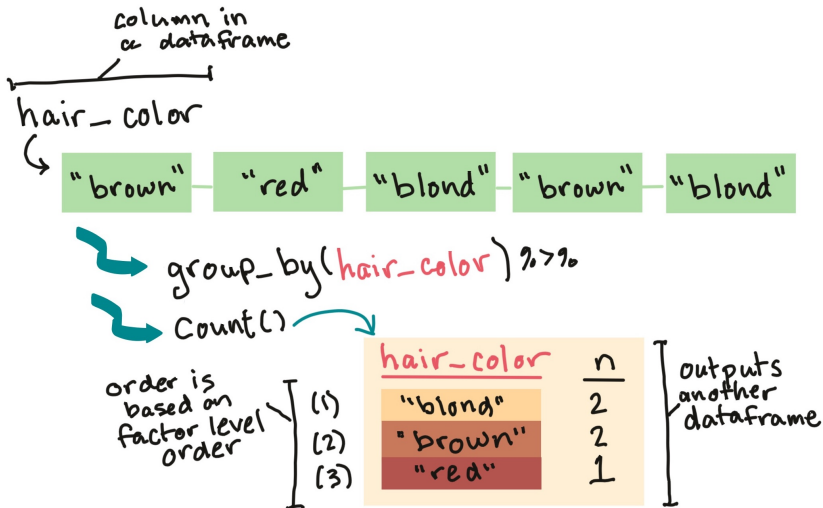 column in
a dataframe
hair_color
"brown" "red" "blond" "brown" "blond"
group_by(hair_color) %>%
count()
hair_color n
order is
based on
factor level
order
(1) "blond" 2
(2) "brown" 2
(3) "red" 1
outputs
another
dataframe